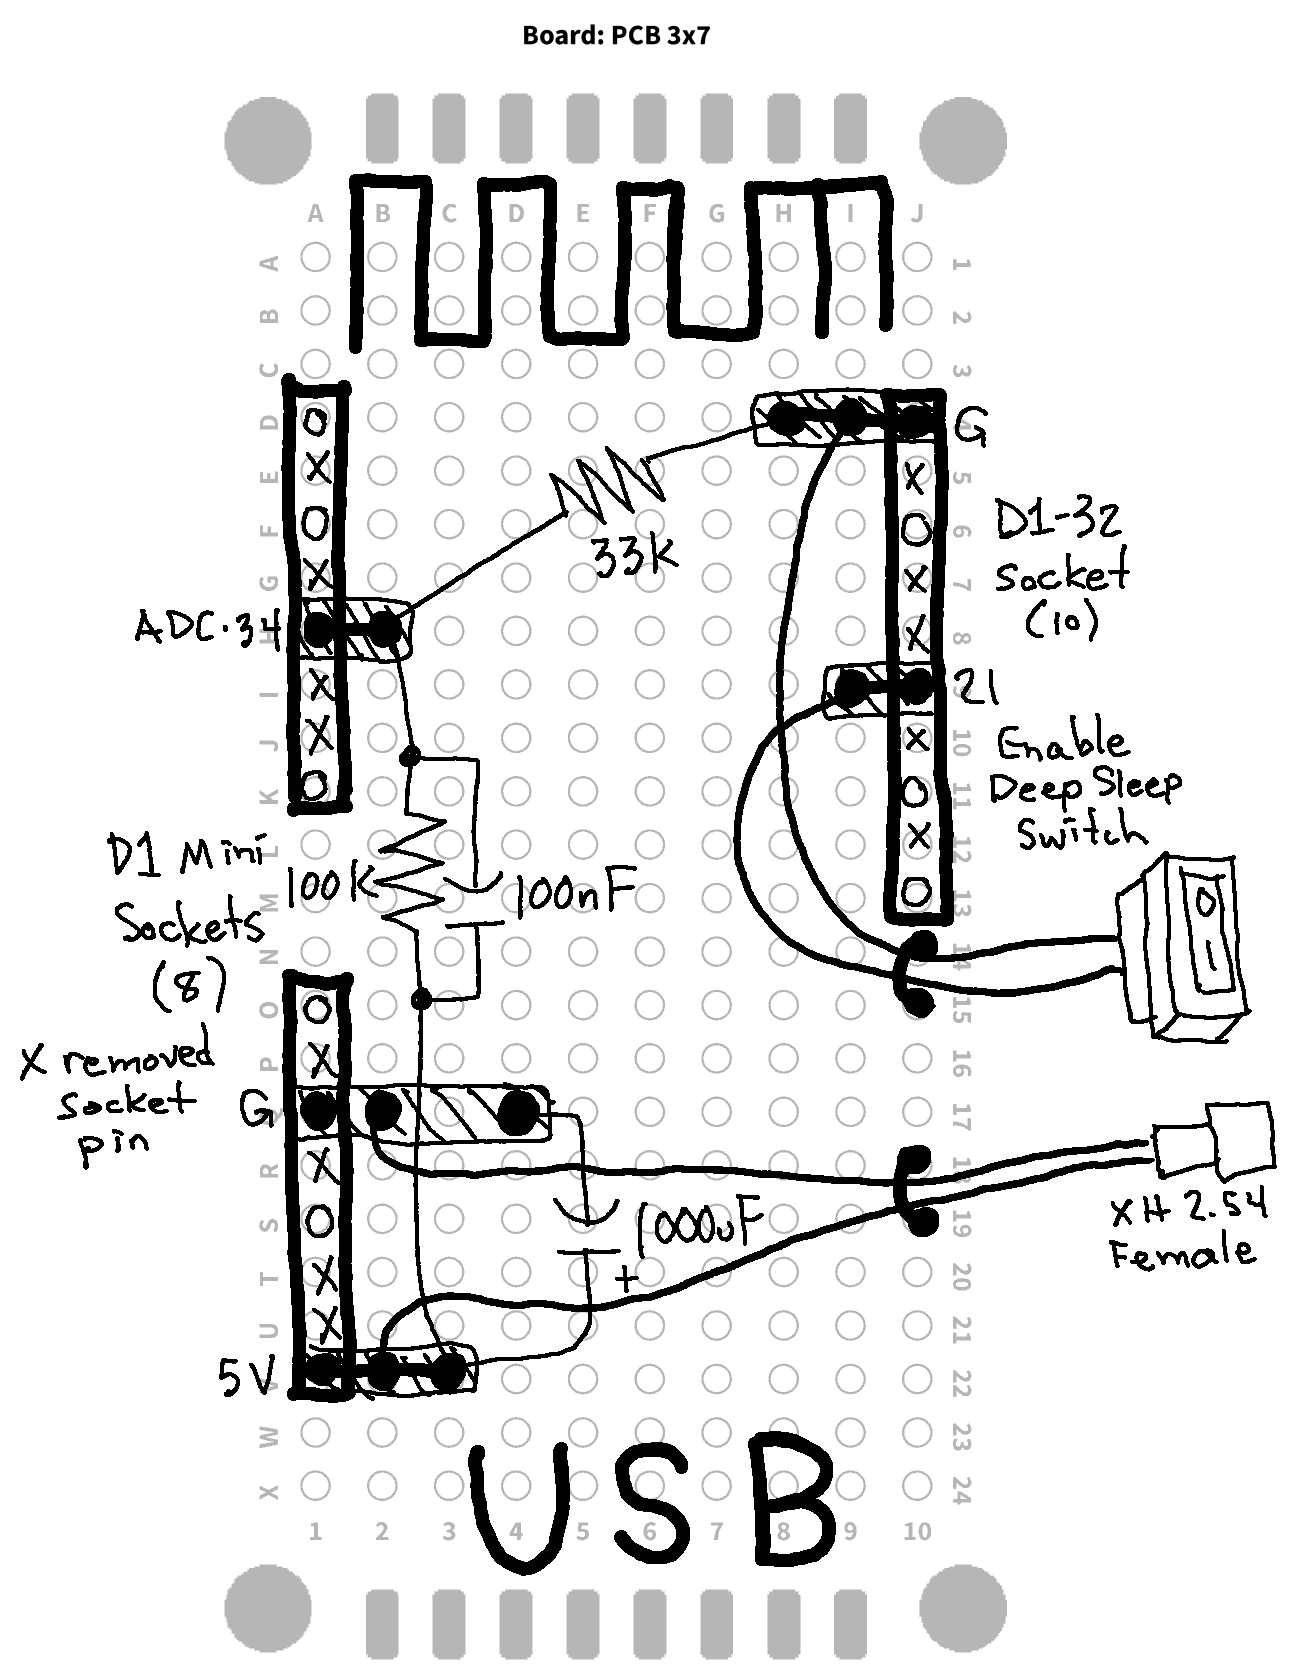 Board: PCB 3x7
A B C D E F G H I J
A
B
C
D
E
F
G
I
J
K
L
M
N
O
P
R
S
T
U
W
X
1
2
3
5
6
7
8
10
11
12
13
14
15
16
17
19
20
21
22
23
24
G
33K
D1-32
Socket
(10)
ADC·34
21
Enable
Deep Sleep
Switch
D1 Mini
Sockets
(8)
100K
100nF
O
X removed
socket
pin
G
1000uF
+
XH 2.54
Female
5V
USB
1 2 3 4 5 6 7 8 9 10